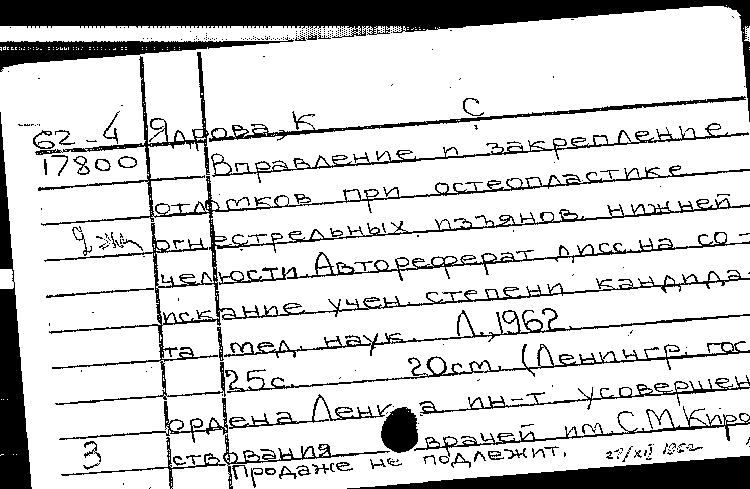 С
62-4 Ядрова, К
17800 Вправление и закрепление
отломков при остеопластике
2 экз огнестрельных изъянов нижней
челюсти. Автореферат дисс. на со-
искание учен. степени кандида
та мед. наук. Л., 1962.
25с. 20см. (Ленингр. гос
ордена Лен а ин-т усовершен
3 ствования врачей им. С.М. Киро
Продаже не подлежит. 27/XII 1962